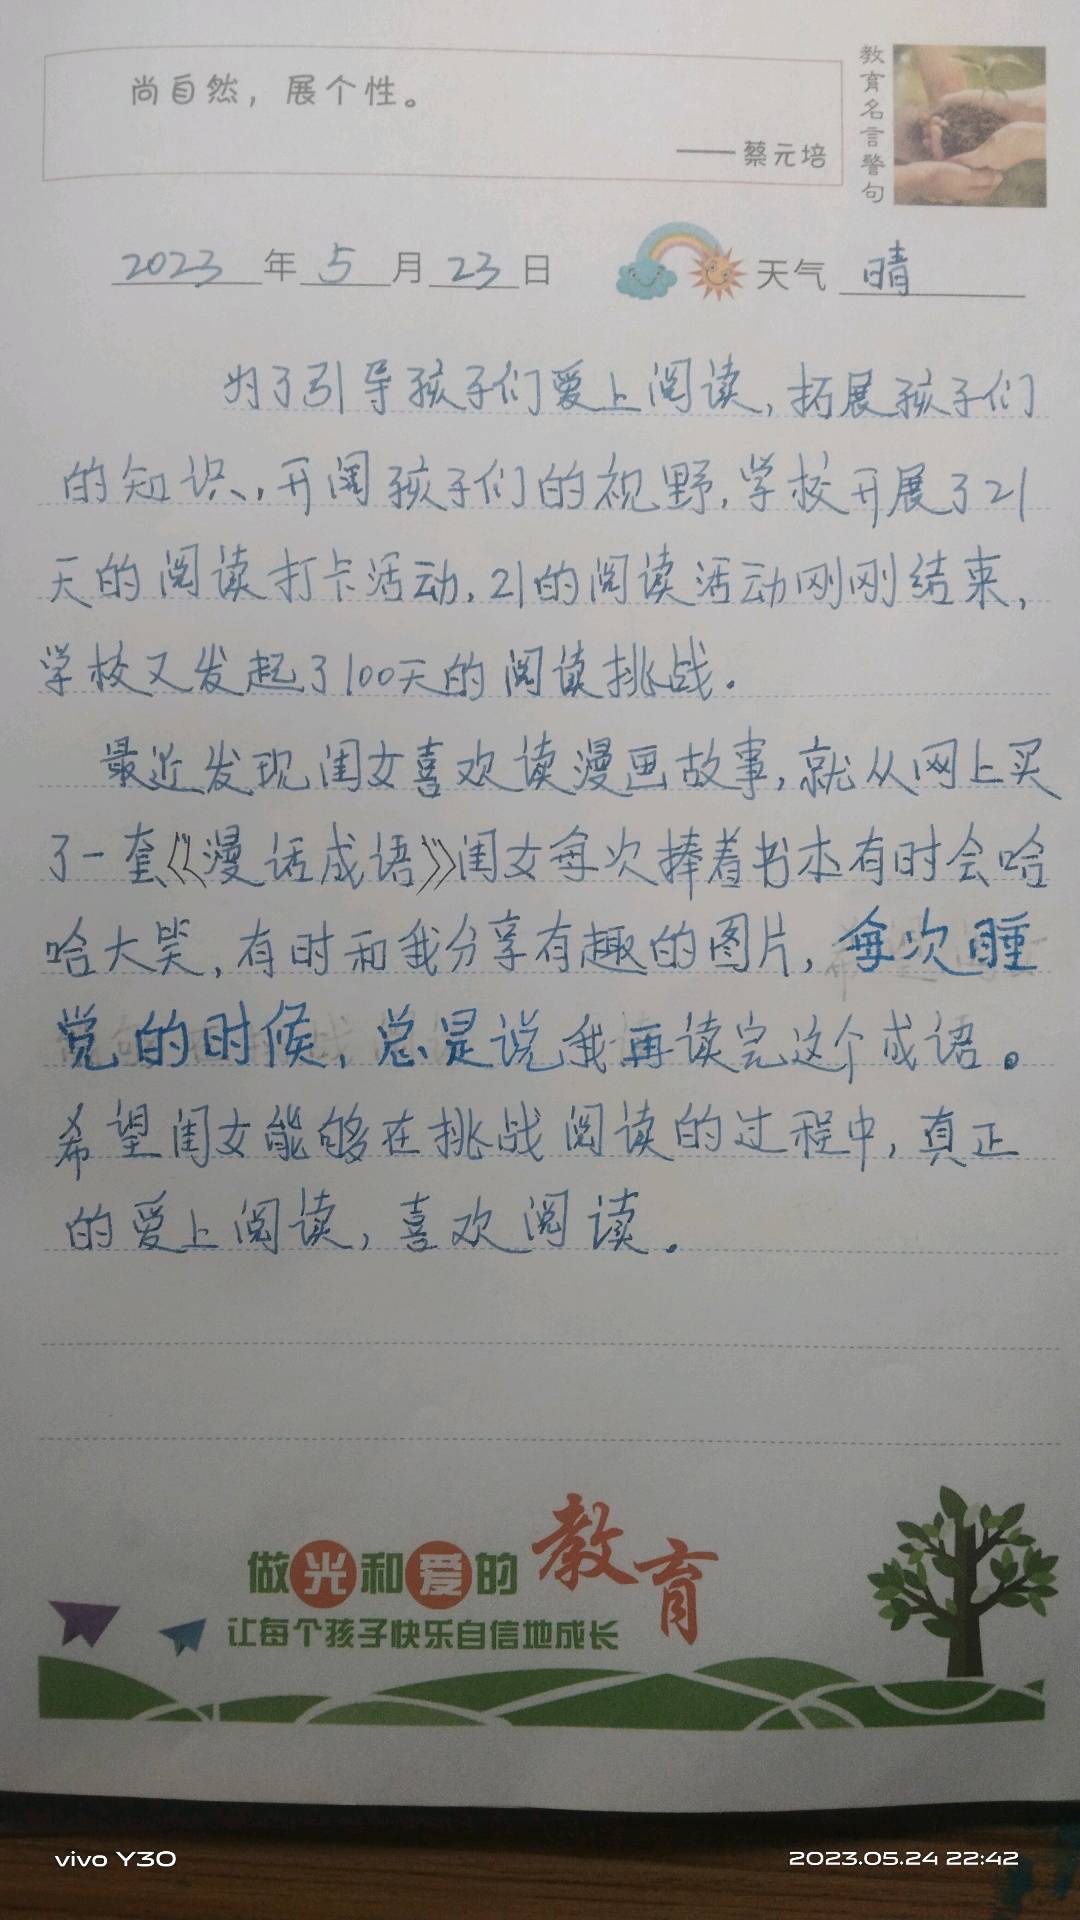 尚自然，展个性。
——蔡元培
教育名言警句
2023年5月23日 天气 晴
为了引导孩子们爱上阅读，拓展孩子们
的知识，开阔孩子们的视野，学校开展了21
天的阅读打卡活动，21的阅读活动刚刚结束，
学校又发起了100天的阅读挑战。
最近发现闺女喜欢读漫画故事，就从网上买
了一套《漫话成语》闺女每次捧着书本有时会哈
哈大笑，有时和我分享有趣的图片，每次睡
觉的时候，总是说我再读完这个成语。
希望闺女能够在挑战阅读的过程中，真正
的爱上阅读，喜欢阅读。
做光和爱的教育
让每个孩子快乐自信地成长
vivo Y30
2023.05.24 22:42